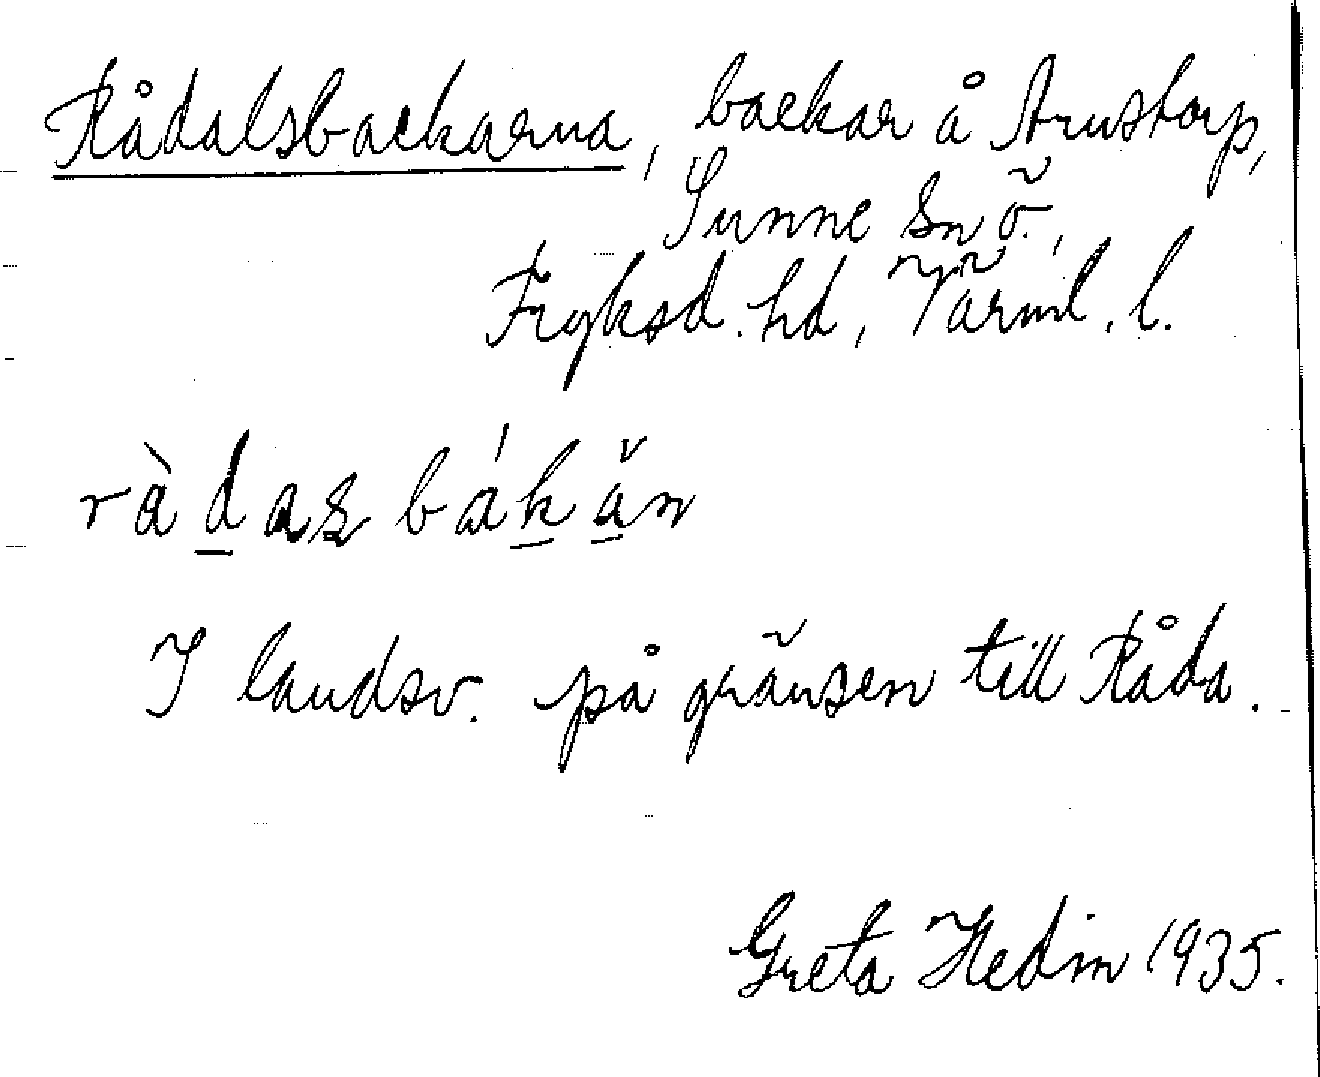 Rådalsbackarna, backar å Arnstorp,
Sunne sn ö.,
Fryksd. hd, Värml. l.
rå̀dasbákän
I landsv. på gränsen till Råda.
Greta Hedin 1935.